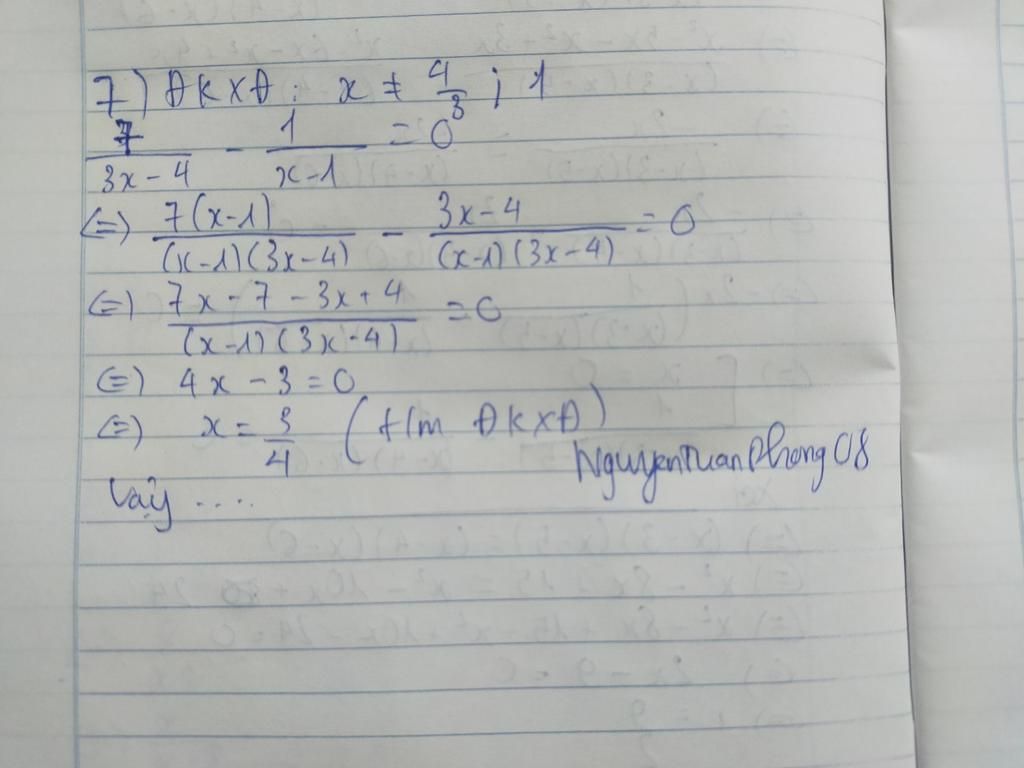 7) ĐKXĐ: x ≠ 4/3 ; 1
7/(3x-4) - 1/(x-1) = 0
(=) 7(x-1)/((x-1)(3x-4)) - (3x-4)/((x-1)(3x-4)) = 0
(=) (7x-7-3x+4)/((x-1)(3x-4)) = 0
(=) 4x - 3 = 0
(=) x = 3/4 (t/m ĐKXĐ)
NguyenTuanPhong08
Vậy ....